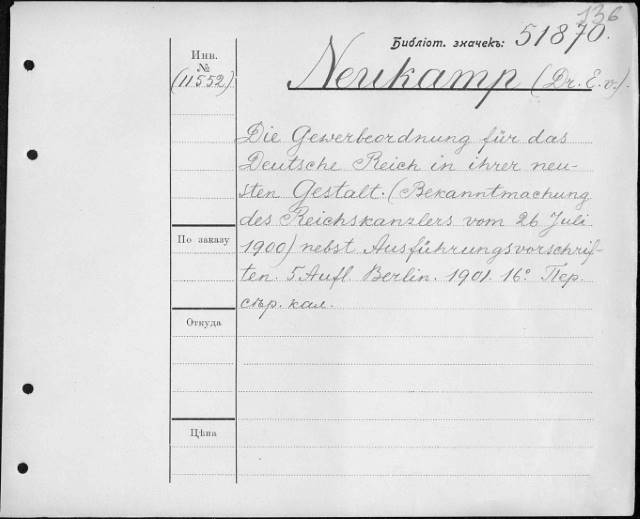 136
Библіот. значекъ: 51870.
Инв.
№
(11552)
Neukamp (Dr. E. v.).
Die Gewerbeordnung für das
Deutsche Reich in ihrer neu-
sten Gestalt. (Bekanntmachung
des Reichskanzlers vom 26 Juli
1900) nebst Ausführungsvorschrif-
ten. 5 Aufl. Berlin. 1901. 16°. Пер.
сѣр. кал.
По заказу
Откуда
Цѣна